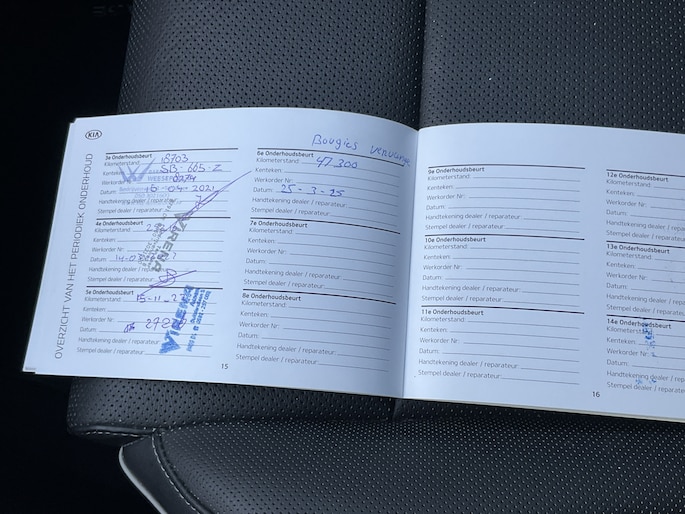 KIA
OVERZICHT VAN HET PERIODIEK ONDERHOUD
3e Onderhoudsbeurt
Kilometerstand: 18703
Kenteken:
Werkorder Nr:
Datum: 16-04-2021
Handtekening dealer / reparateur:
Stempel dealer / reparateur:
4e Onderhoudsbeurt
Kilometerstand:
Kenteken:
Werkorder Nr:
Datum:
Handtekening dealer / reparateur:
Stempel dealer / reparateur:
5e Onderhoudsbeurt
Kilometerstand:
Kenteken:
Werkorder Nr:
Datum:
Handtekening dealer / reparateur:
Stempel dealer / reparateur:
15
Bougies
6e Onderhoudsbeurt
Kilometerstand: 47.300
Kenteken:
Werkorder Nr:
Datum: 25-3-25
Handtekening dealer / reparateur:
Stempel dealer / reparateur:
7e Onderhoudsbeurt
Kilometerstand:
Kenteken:
Werkorder Nr:
Datum:
Handtekening dealer / reparateur:
Stempel dealer / reparateur:
8e Onderhoudsbeurt
Kilometerstand:
Kenteken:
Werkorder Nr:
Datum:
Handtekening dealer / reparateur:
Stempel dealer / reparateur:
9e Onderhoudsbeurt
Kilometerstand:
Kenteken:
Werkorder Nr:
Datum:
Handtekening dealer / reparateur:
Stempel dealer / reparateur:
10e Onderhoudsbeurt
Kilometerstand:
Kenteken:
Werkorder Nr:
Datum:
Handtekening dealer / reparateur:
Stempel dealer / reparateur:
11e Onderhoudsbeurt
Kilometerstand:
Kenteken:
Werkorder Nr:
Datum:
Handtekening dealer / reparateur:
Stempel dealer / reparateur:
16
12e Onderhoudsbeurt
Kilometerstand:
Kenteken:
Werkorder Nr:
Datum:
Handtekening dealer / reparateur:
Stempel dealer / reparateur:
13e Onderhoudsbeurt
Kilometerstand:
Kenteken:
Werkorder Nr:
Datum:
Handtekening dealer / reparateur:
Stempel dealer / reparateur:
14e Onderhoudsbeurt
Kenteken:
Werkorder Nr:
Datum:
Handtekening dealer / reparateur:
Stempel dealer / reparateur: